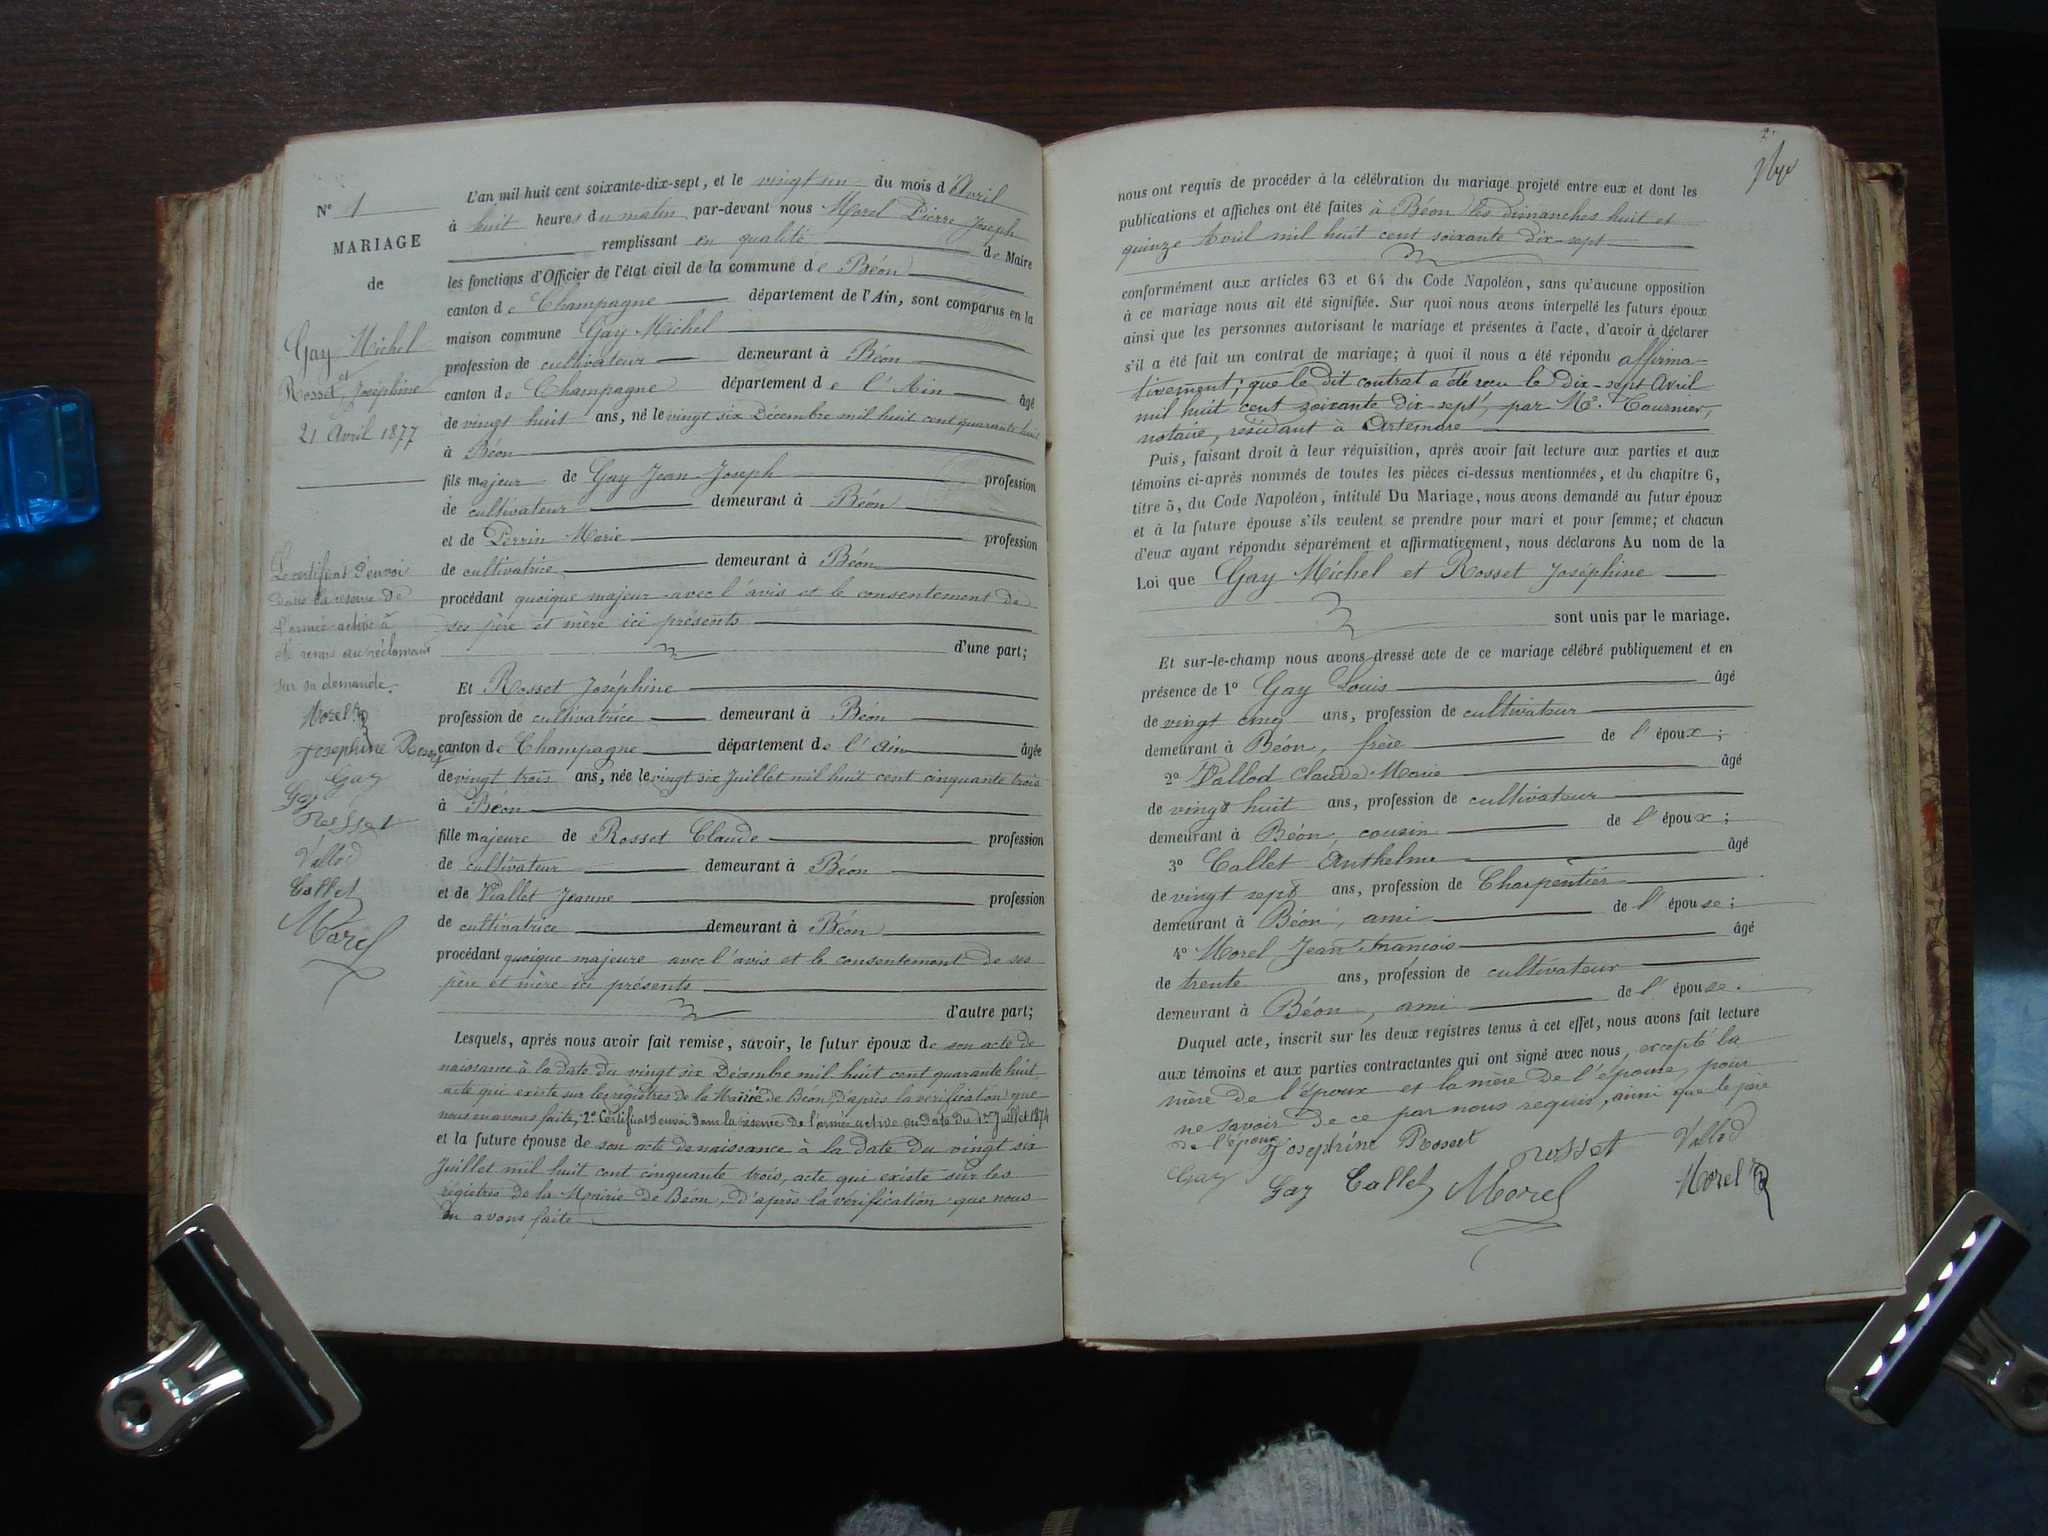 N° 1
MARIAGE
de
Gay Michel
et
Rosset Joséphine
21 Avril 1877
Le certificat d'envoi
dans la réserve de
l'armée active à
été remis au réclamant
sur sa demande.
Morel
Joséphine Rosset
Gay
Gay
Rosset
Vallod
Callet
Morel
L'an mil huit cent soixante-dix-sept, et le vingt un du mois d'Avril
à huit heures du matin par-devant nous Morel Pierre Joseph
remplissant en qualité de Maire
les fonctions d'Officier de l'état civil de la commune de Béon
canton de Champagne département de l'Ain, sont comparus en la
maison commune Gay Michel
profession de cultivateur demeurant à Béon
canton de Champagne département de l'Ain âgé
de vingt huit ans, né le vingt six Décembre mil huit cent quarante huit
à Béon
fils majeur de Gay Jean Joseph profession
de cultivateur demeurant à Béon
et de Perrin Marie profession
de cultivatrice demeurant à Béon
procédant quoique majeur avec l'avis et le consentement de
ses père et mère ici présents
d'une part;
Et Rosset Joséphine
profession de cultivatrice demeurant à Béon
canton de Champagne département de l'Ain âgée
de vingt trois ans, née le vingt six Juillet mil huit cent cinquante trois
à Béon
fille majeure de Rosset Claude profession
de cultivateur demeurant à Béon
et de Viallet Jeanne profession
de cultivatrice demeurant à Béon
procédant quoique majeure avec l'avis et le consentement de ses
père et mère ici présents
d'autre part;
Lesquels, après nous avoir fait remise, savoir, le futur époux de son acte de
naissance à la date du vingt six Décembre mil huit cent quarante huit
acte qui existe sur les régistres de la Mairie de Béon, d'après la vérification que
nous en avons faite, 2° Certificat d'envoi dans la réserve de l'armée active en date du 1er Juillet 1874
et la future épouse de son acte de naissance à la date du vingt six
Juillet mil huit cent cinquante trois, acte qui existe sur les
régistres de la Mairie de Béon, d'après la vérification que nous
en avons faite
2
nous ont requis de procéder à la célébration du mariage projeté entre eux et dont les
publications et affiches ont été faites à Béon les dimanches huit et
quinze Avril mil huit cent soixante dix-sept
conformément aux articles 63 et 64 du Code Napoléon, sans qu'aucune opposition
à ce mariage nous ait été signifiée. Sur quoi nous avons interpellé les futurs époux
ainsi que les personnes autorisant le mariage et présentes à l'acte, d'avoir à déclarer
s'il a été fait un contrat de mariage; à quoi il nous a été répondu affirma-
tivement; que le dit contrat a été reçu le dix-sept Avril
mil huit cent soixante dix-sept, par Me. Tournier,
notaire, résidant à Artemare
Puis, faisant droit à leur réquisition, après avoir fait lecture aux parties et aux
témoins ci-après nommés de toutes les pièces ci-dessus mentionnées, et du chapitre 6,
titre 5, du Code Napoléon, intitulé Du Mariage, nous avons demandé au futur époux
et à la future épouse s'ils veulent se prendre pour mari et pour femme; et chacun
d'eux ayant répondu séparément et affirmativement, nous déclarons Au nom de la
Loi que Gay Michel et Rosset Joséphine
sont unis par le mariage.
Et sur-le-champ nous avons dressé acte de ce mariage célébré publiquement et en
présence de 1° Gay Louis âgé
de vingt cinq ans, profession de cultivateur
demeurant à Béon, frère de l'époux;
2° Vallod Claude Marie âgé
de vingt huit ans, profession de cultivateur
demeurant à Béon, cousin de l'époux;
3° Callet Anthelme âgé
de vingt sept ans, profession de Charpentier
demeurant à Béon, ami de l'épouse;
4° Morel Jean François âgé
de trente ans, profession de cultivateur
demeurant à Béon, ami de l'épouse.
Duquel acte, inscrit sur les deux registres tenus à cet effet, nous avons fait lecture
aux témoins et aux parties contractantes qui ont signé avec nous, excepté la
mère de l'époux et la mère de l'épouse, pour
ne savoir de ce par nous requis, ainsi que le père
de l'époux Joséphine Rosset Rosset Vallod
Gay Gay Callet Morel Morel